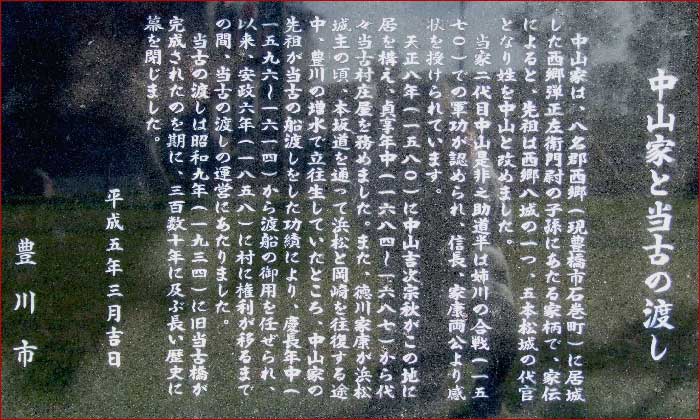 中山家と当古の渡し
中山家は、八名郡西郷（現豊橋市石巻町）に居城
した西郷弾正左衛門尉の子孫にあたる家柄で、家伝
によると、先祖は西郷八城の一つ、五本松城の代官
となり姓を中山と改めました。
当家二代目中山是非之助道半は姉川の合戦（一五
七〇）での軍功が認められ、信長、家康両公より感
状を授けられています。
天正八年（一五八〇）に中山吉次宗秋がこの地に
居を構え、貞享年中（一六八四～一六八七）から代
々当古村庄屋を務めました。また、徳川家康が浜松
城主の頃、本坂道を通って浜松と岡崎を往復する途
中、豊川の増水で立往生していたところ、中山家の
先祖が当古の船渡しをした功績により、慶長年中（
一五九六～一六一四）から渡船の御用を任ぜられ、
以来、安政六年（一八五八）に村に権利が移るまで
の間、当古の渡しの運営にあたりました。
当古の渡しは昭和九年（一九三四）に旧当古橋が
完成されたのを期に、三百数十年に及ぶ長い歴史に
幕を閉じました。
平成五年三月吉日
豊川市